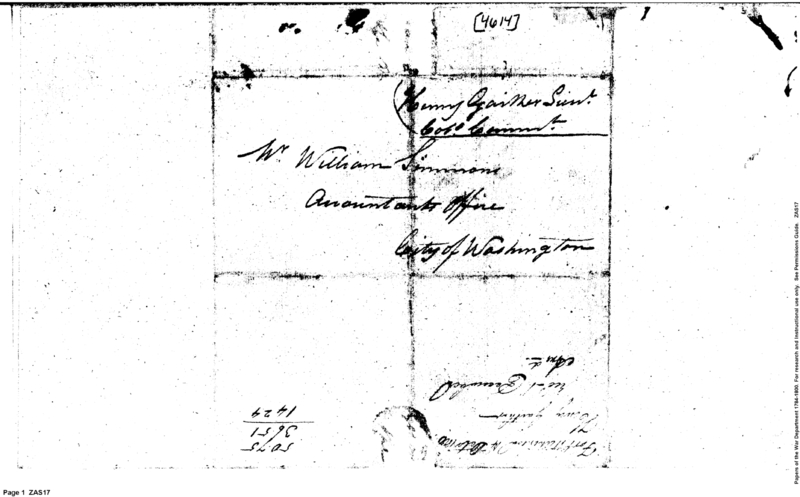 [4614]
Henry Gaither Lieut.
Colo. Commt.
Mr. William Simmons
Accountants Office
City of Washington
5075
3651
1424
Henry Gaither
Page 1 ZAS17
Papers of the War Department 1784-1800. For research and instructional use only. See Permissions Guide. ZAS17